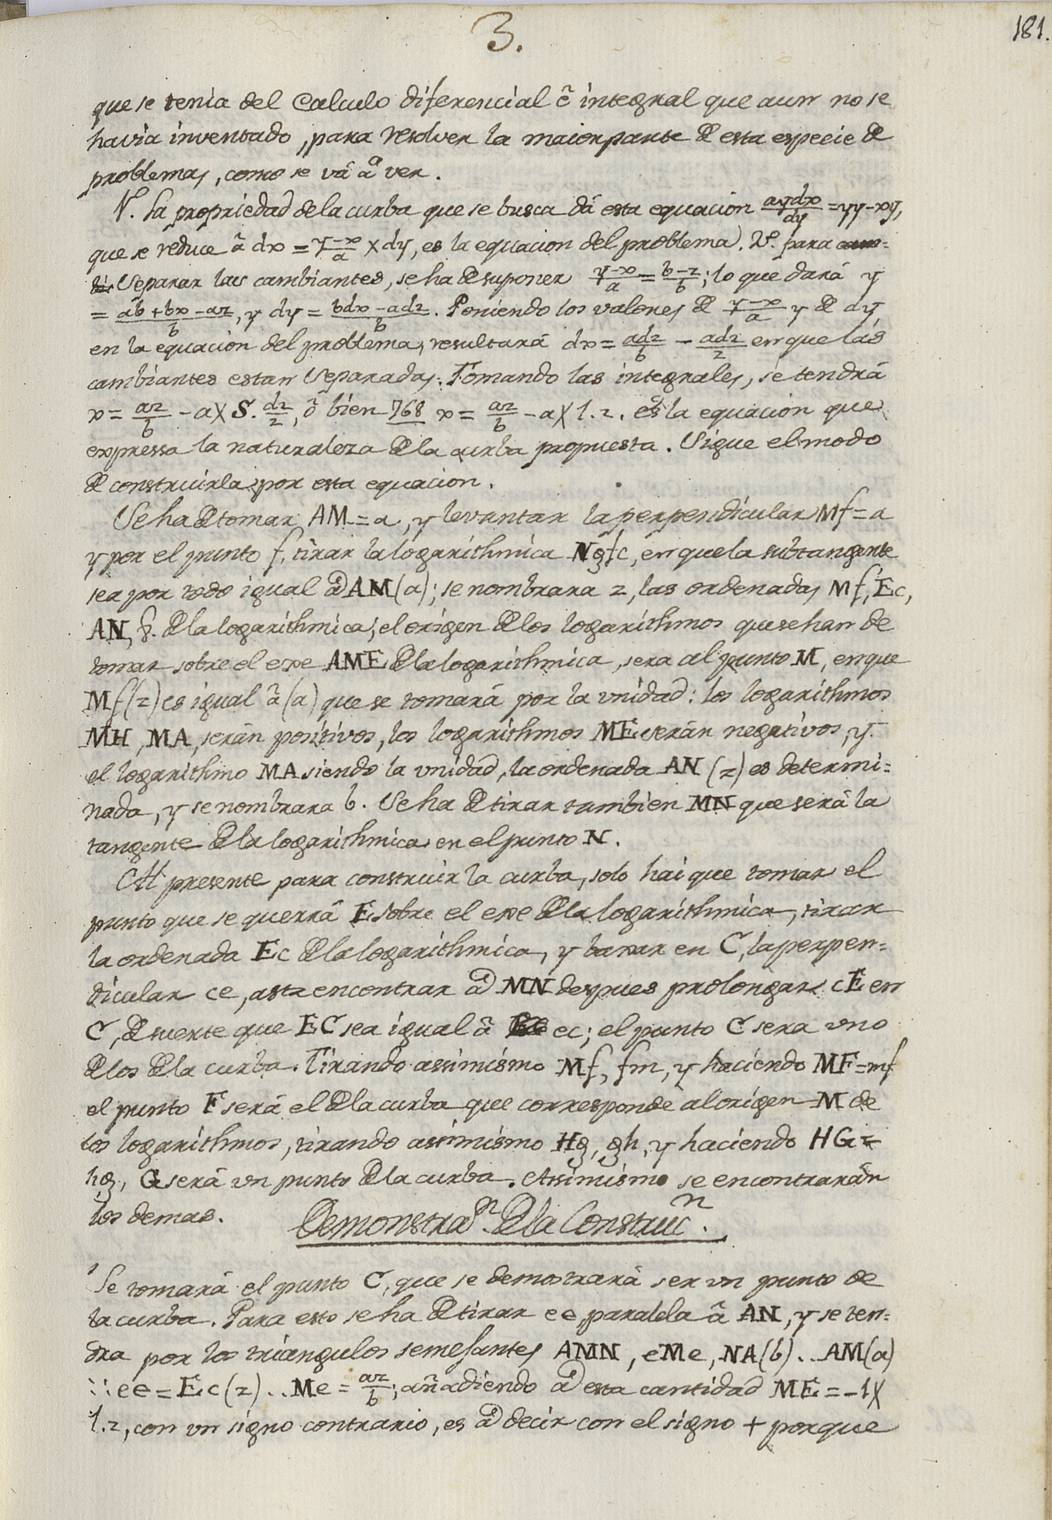 3.
181.
que se tenia del Calculo diferencial ê integral que aun no se
havia inventado, para resolver la maior parte de esta especie de
problemas, como se vâ â ver.
1º. La propriedad de la curba que se busca dâ esta equacion aydx/dy = yy-xy,
que se reduce â dx = y-x/a × dy, es la equacion del problema. 2º. para
separar las cambiantes, se ha de suponer y-x/a = b-z/b; lo que darâ y
= ab+bx-az/b, y dy = bdx-adz/b. Poniendo los valores de y-x/a y de dy
en la equacion del problema, resultarâ dx = adz/b - adz/z en que las
cambiantes estan separadas. Tomando las integrales, se tendrâ
x = az/b - a× S. dz/z, ô bien 768 x = az/b - a× l.z. es la equacion que
expressa la naturaleza de la curba propuesta. Sigue el modo
de construirla por esta equacion.
Se ha de tomar AM = a, y levantar la perpendicular Mf = a
y por el punto f, tirar la logarithmica Ngfc, en que la subtangente
sea por todo igual â AM (a); se nombrara z, las ordenadas Mf, Ec,
AN, &. de la logarithmica; el origen de los logarithmos que se han de
tomar sobre el exe AME de la logarithmica, sera al punto M, en que
Mf (z) es igual â (a) que se tomarâ por la vnidad: los logarithmos
MH, MA, serán positivos, los logarithmos ME serán negativos, y
el logarithmo MA siendo la vnidad, la ordenada AN (z) es determi=
nada, y se nombrara b. Se ha de tirar tambien MN que serâ la
tangente de la logarithmica en el punto N.
Al presente para construir la curba, solo hai que tomar el
punto que se querrâ E sobre el exe de la logarithmica, tirar
la ordenada Ec de la logarithmica, y baxar en C, la perpen=
dicular ce, asta encontrar â MN despues prolongar cE en
C, de suerte que EC sea igual â ec; el punto C sera vno
de los de la curba. Tirando assimismo Mf, fm, y haciendo MF=mf
el punto F serâ el de la curba que corresponde al origen M de
los logarithmos, tirando assimismo Hg, gh, y haciendo HG=
hg, G serâ vn punto de la curba. Assimismo se encontrarán
los demas.
Demonstran. de la Construcn.
Se tomarâ el punto C, que se demostrarâ ser vn punto de
la curba. Para esto se ha de tirar ee, paralela â AN, y se ten=
dra por los triangulos semejantes AMN, eMe, NA (b) .. AM (a)
:: ee = Ec (z) .. Me = az/b; añadiendo â esta cantidad ME = -1×
l.z, con vn signo contrario, es â decir con el signo + porque